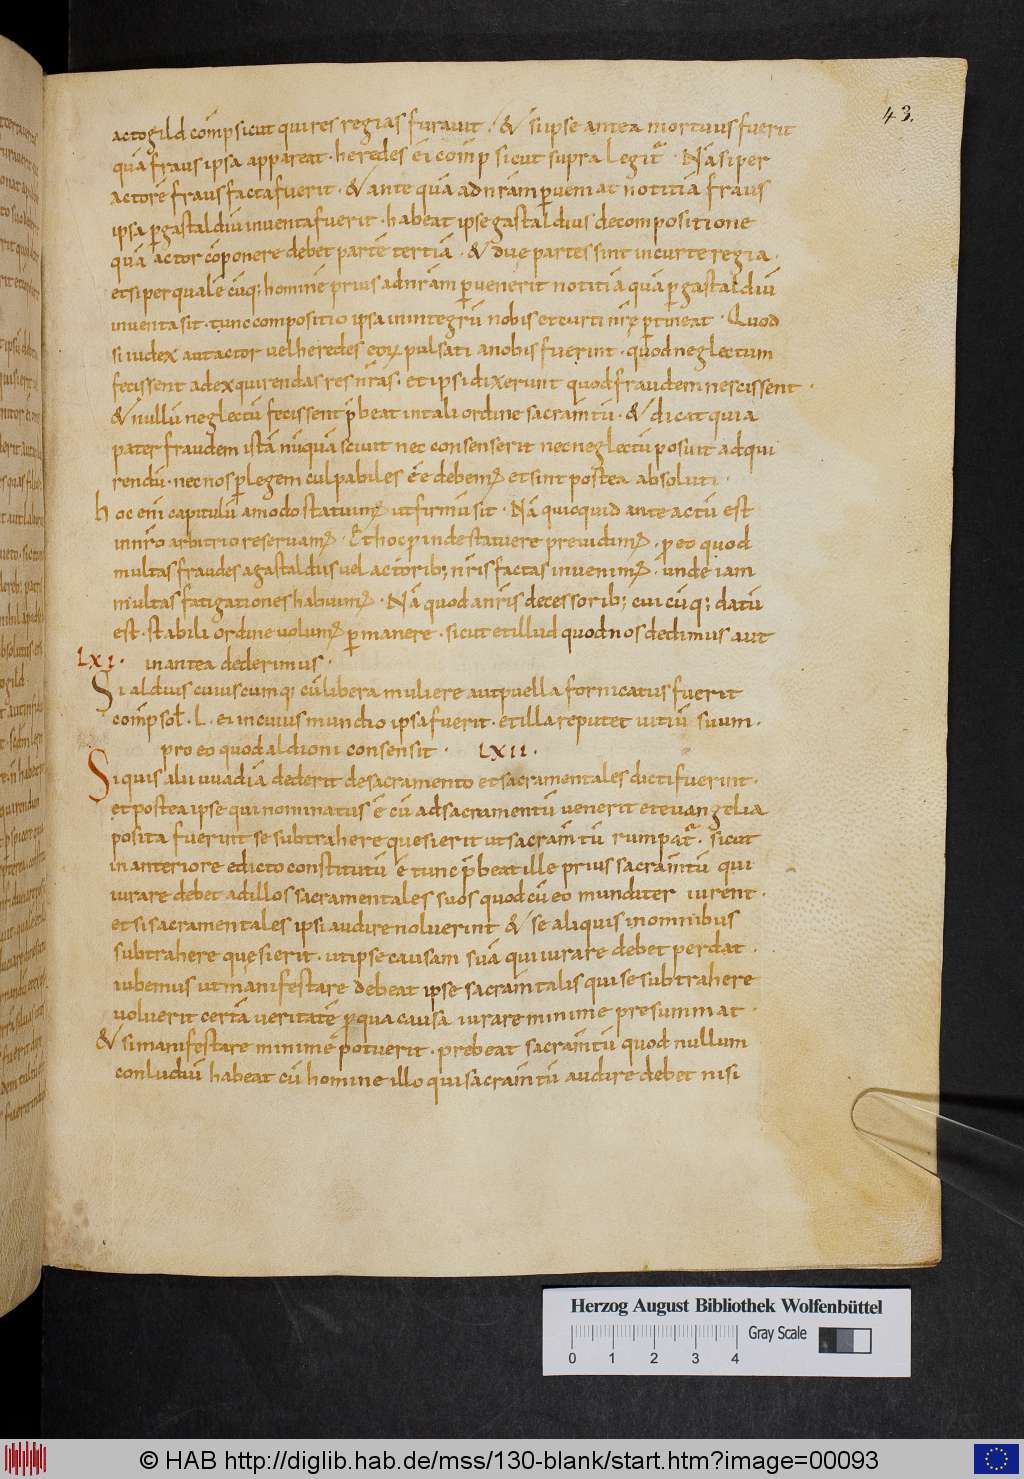 43.
actogild cōmp sicut qui res regias furauit · & si ipse antea mortuus fuerit
quā fraus ipsa appareat · heredes ei cōmp sicut supra legit̄ · Nā si per
actorē fraus facta fuerit · & ante quā ad nr̄am ꝑueniat notitiā fraus
ipsa ꝑ gastaldiū inuenta fuerit · habeat ipse gastaldius de compositione
quā actor cōponere debet partē tertiā · & duę partes sint in curte regia ·
et si per qualē cūq; hominē prius ad nr̄am ꝑuenerit notitiā quā ꝑ gastaldiū
inuenta sit · tunc compositio ipsa in integrū nobis et curti nr̄ę ꝑtineat · Quod
si iudex aut actor uel heredes eoꝝ pulsati a nobis fuerint · quod neglectum
fecissent ad exquirendas res nr̄as · et ipsi dixerunt quod fraudem nescissent ·
& nullū neglectū fecissent p̄beat in tali ordine sacram̄tū · & dicat quia
pater fraudem istā nūquā sciuit nec consenserit nec neglectū posuit adqui
rendū · nec nos ꝑ legem culpabiles ēē debemꝰ et sint postea absoluti ·
hoc eni capitulū amodo statuimꝰ ut firmū sit · Nā quicquid ante actū est
in nr̄o arbitrio reseruamꝰ · Et hoc ꝓinde statuere preuidimꝰ · ꝓ eo quod
multas fraudes a gastaldiis uel actorib; nr̄is factas inuenimꝰ · unde iam
multas fatigationes habuimꝰ · Nā quod a nr̄is decessorib; cui cūq; datū
est · stabili ordine uolumꝰ ꝑmanere · sicut et illud quod nos dedimus aut
LXI · in antea dederimus ·
Si aldius cuiuscumq; cū libera muliere aut puella fornicatus fuerit
cōmp sol̄ · L · ei in cuius mundio ipsa fuerit · et illa reputet uitiū suum ·
pro eo quod aldioni consensit · LXII ·
Si quis alii uuadiā dederit de sacramento et sacramentales dicti fuerint ·
et postea ipse qui nominatus ē cū ad sacramentū uenerit et euangelia
posita fuerint se subtrahere quesierit ut sacram̄tū rumpat̄ · sicut
in anteriore edicto constitutū ē tunc p̄beat ille prius sacram̄tū qui
iurare debet ad illos sacramentales suos quod cū eo munditer iurent ·
et si sacramentales ipsi audire noluerint & se aliquis in omnibus
subtrahere quesierit · ut ipse causam suā qui iurare debet perdat ·
iubemus ut manifestare debeat ipse sacram̄talis qui se subtrahere
uoluerit certā ueritatē ꝓ qua causa iurare minime presummat ·
& si manifestare minime potuerit · prebeat sacram̄tū quod nullum
conludiū habeat cū homine illo qui sacram̄tū audire debet nisi
Herzog August Bibliothek Wolfenbüttel
0 1 2 3 4
Gray Scale
© HAB http://diglib.hab.de/mss/130-blank/start.htm?image=00093